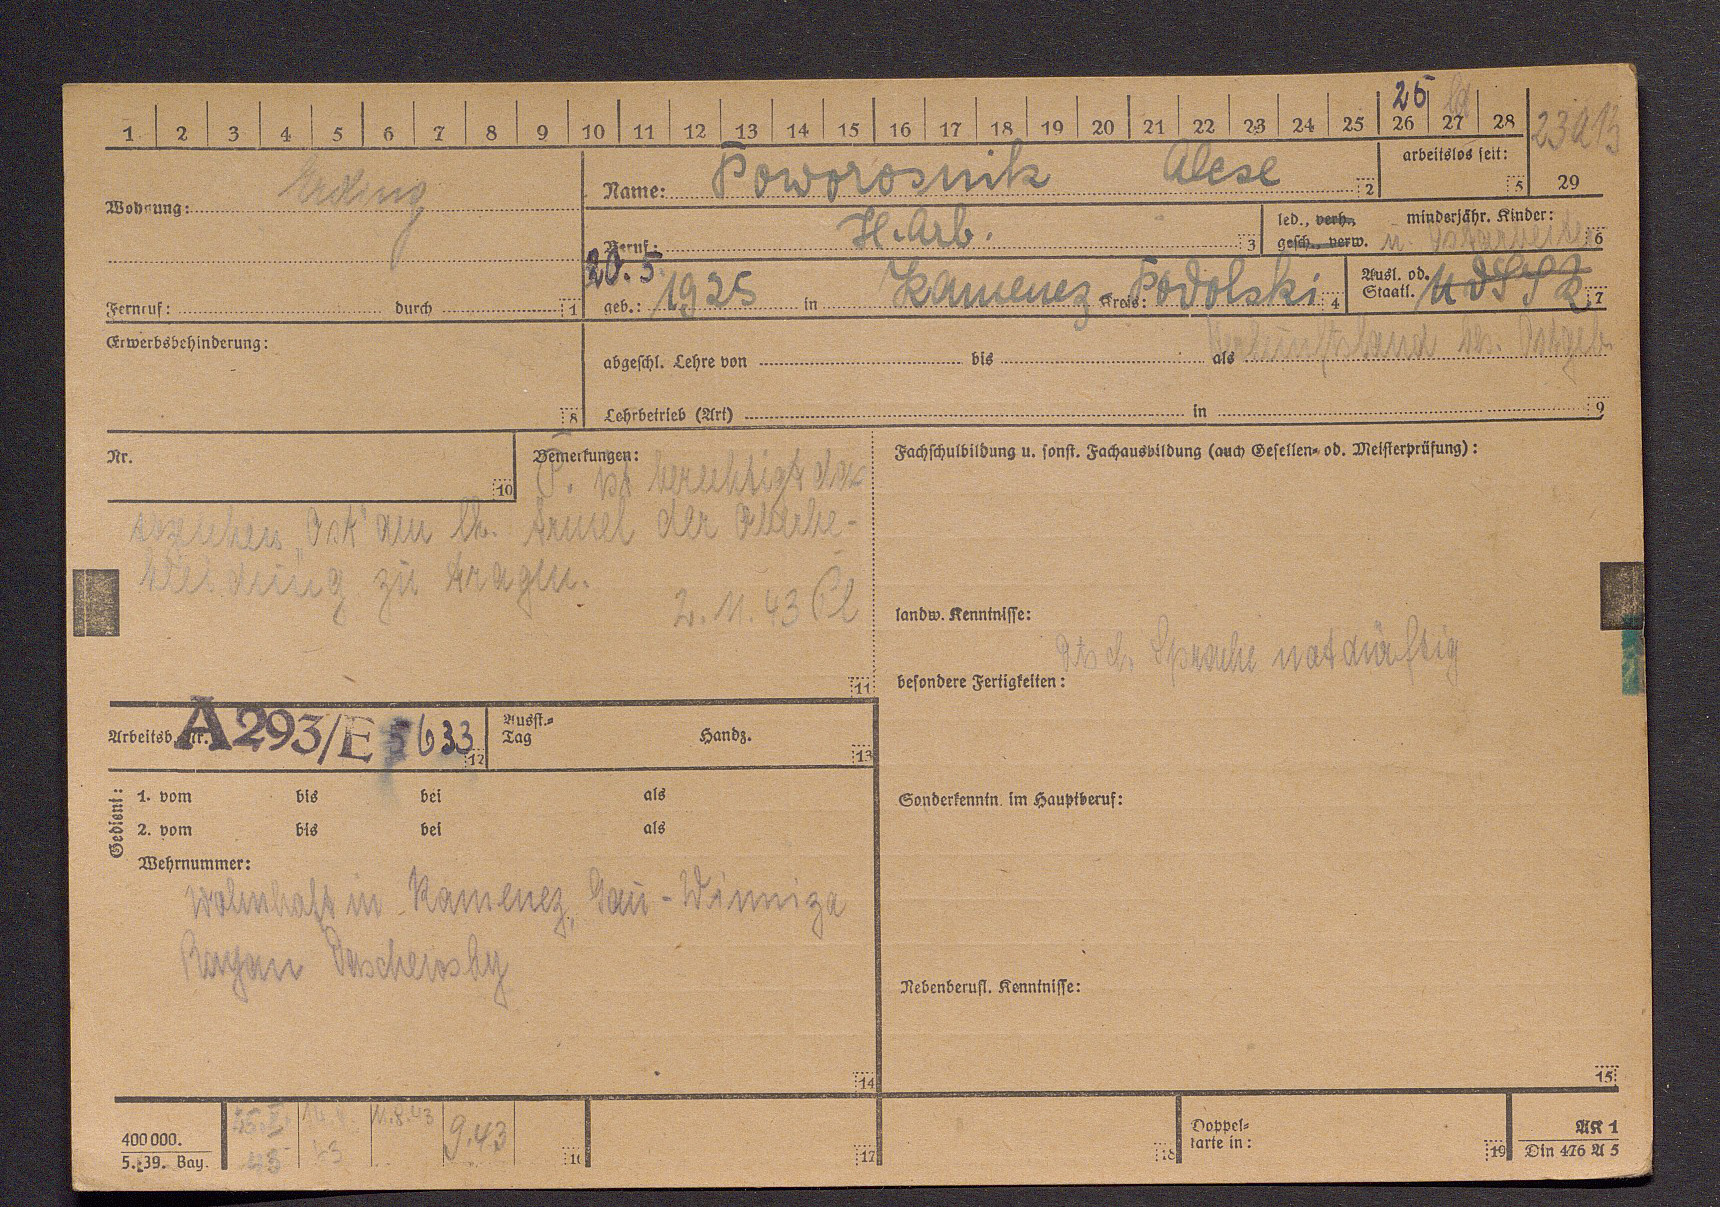 25
1 2 3 4 5 6 7 8 9 10 11 12 13 14 15 16 17 18 19 20 21 22 23 24 25 26 27 28
23a13
29
Wohnung: Erding
Name: Poworosnik Alese 2
arbeitslos seit: 5
Beruf: H.Arb. 3
led., verh., gesch., verw.
minderjähr. Kinder: 6
u. Ostarbeiter
Fernruf: durch 1
20.5.
geb.: 1925 in Kamenez- Kreis: Podolski 4
Ausl. od. Staatl. UdSSR 7
Erwerbsbehinderung: 8
abgeschl. Lehre von bis als
bes. Ostgeb.
Lehrbetrieb (Art) in 9
Nr. 10
Bemerkungen:
P. ist berechtigt das
"Ost" am lk. Ärmel der Oberbe-
kleidung zu tragen.
2.11.43
11
Fachschulbildung u. sonst. Fachausbildung (auch Gesellen- od. Meisterprüfung):
landw. Kenntnisse:
dtsch. Sprache notdürftig
besondere Fertigkeiten:
Arbeitsb. Nr. A293/E 5633 12
Ausst.-Tag Handz. 13
Gedient:
1. vom bis bei als
2. vom bis bei als
Wehrnummer:
wohnhaft in Kamenez, Gau-Winniza
Rayan
14
Sonderkenntn. im Hauptberuf:
Nebenberufl. Kenntnisse:
15
400 000.
5. 39. Bay.
11.8.43
9.43
16
17
18
Doppel-
karte in:
19
AK 1
Din 476 A 5